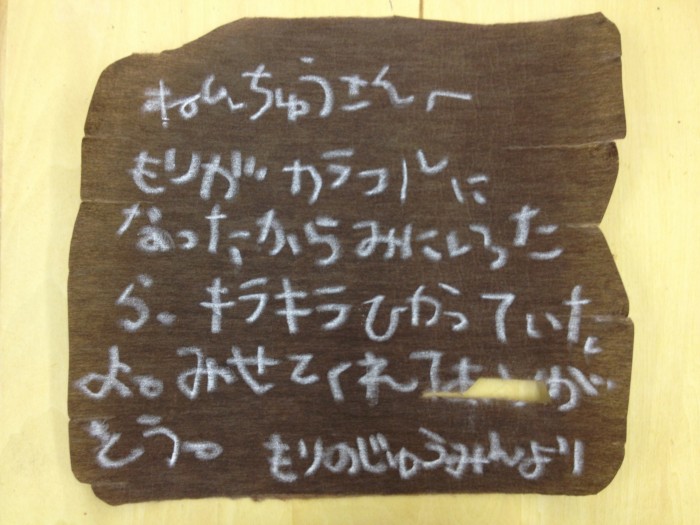 ねんちゅうさんへ
もりがカラフルに
なったからみにいった
ら、キラキラひかっていた
よ。みせてくれて が
とう。 もりのじゅうみんより